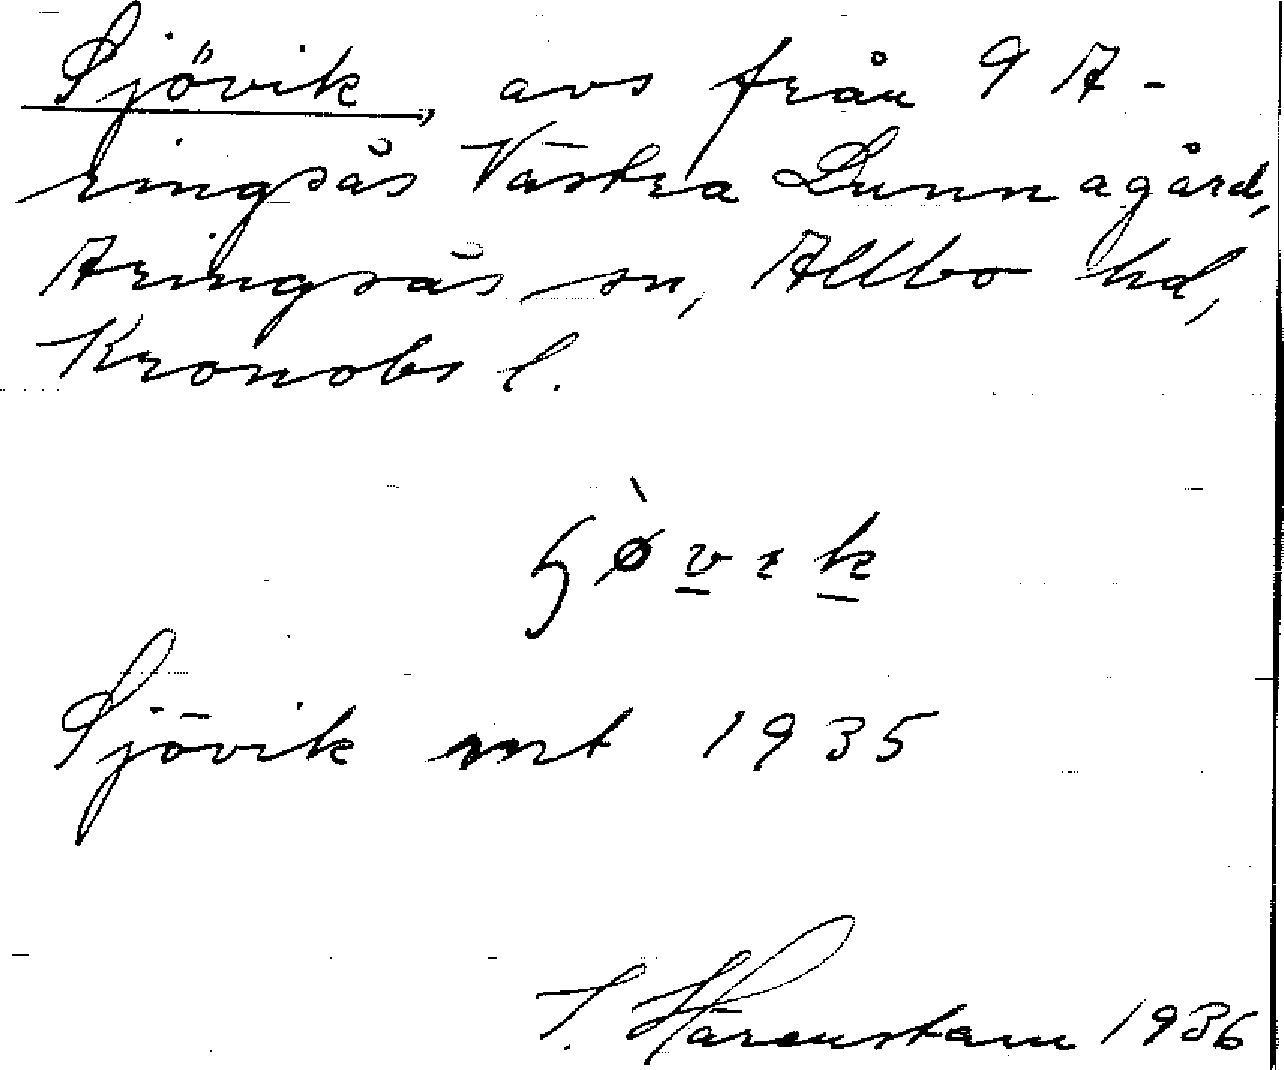 Sjövik, avs från 9 A-
ringsås Västra Lunnagård,
Aringsås sn, Allbo hd,
Kronobs l.
Sjövik mt 1935
Härenstam 1936